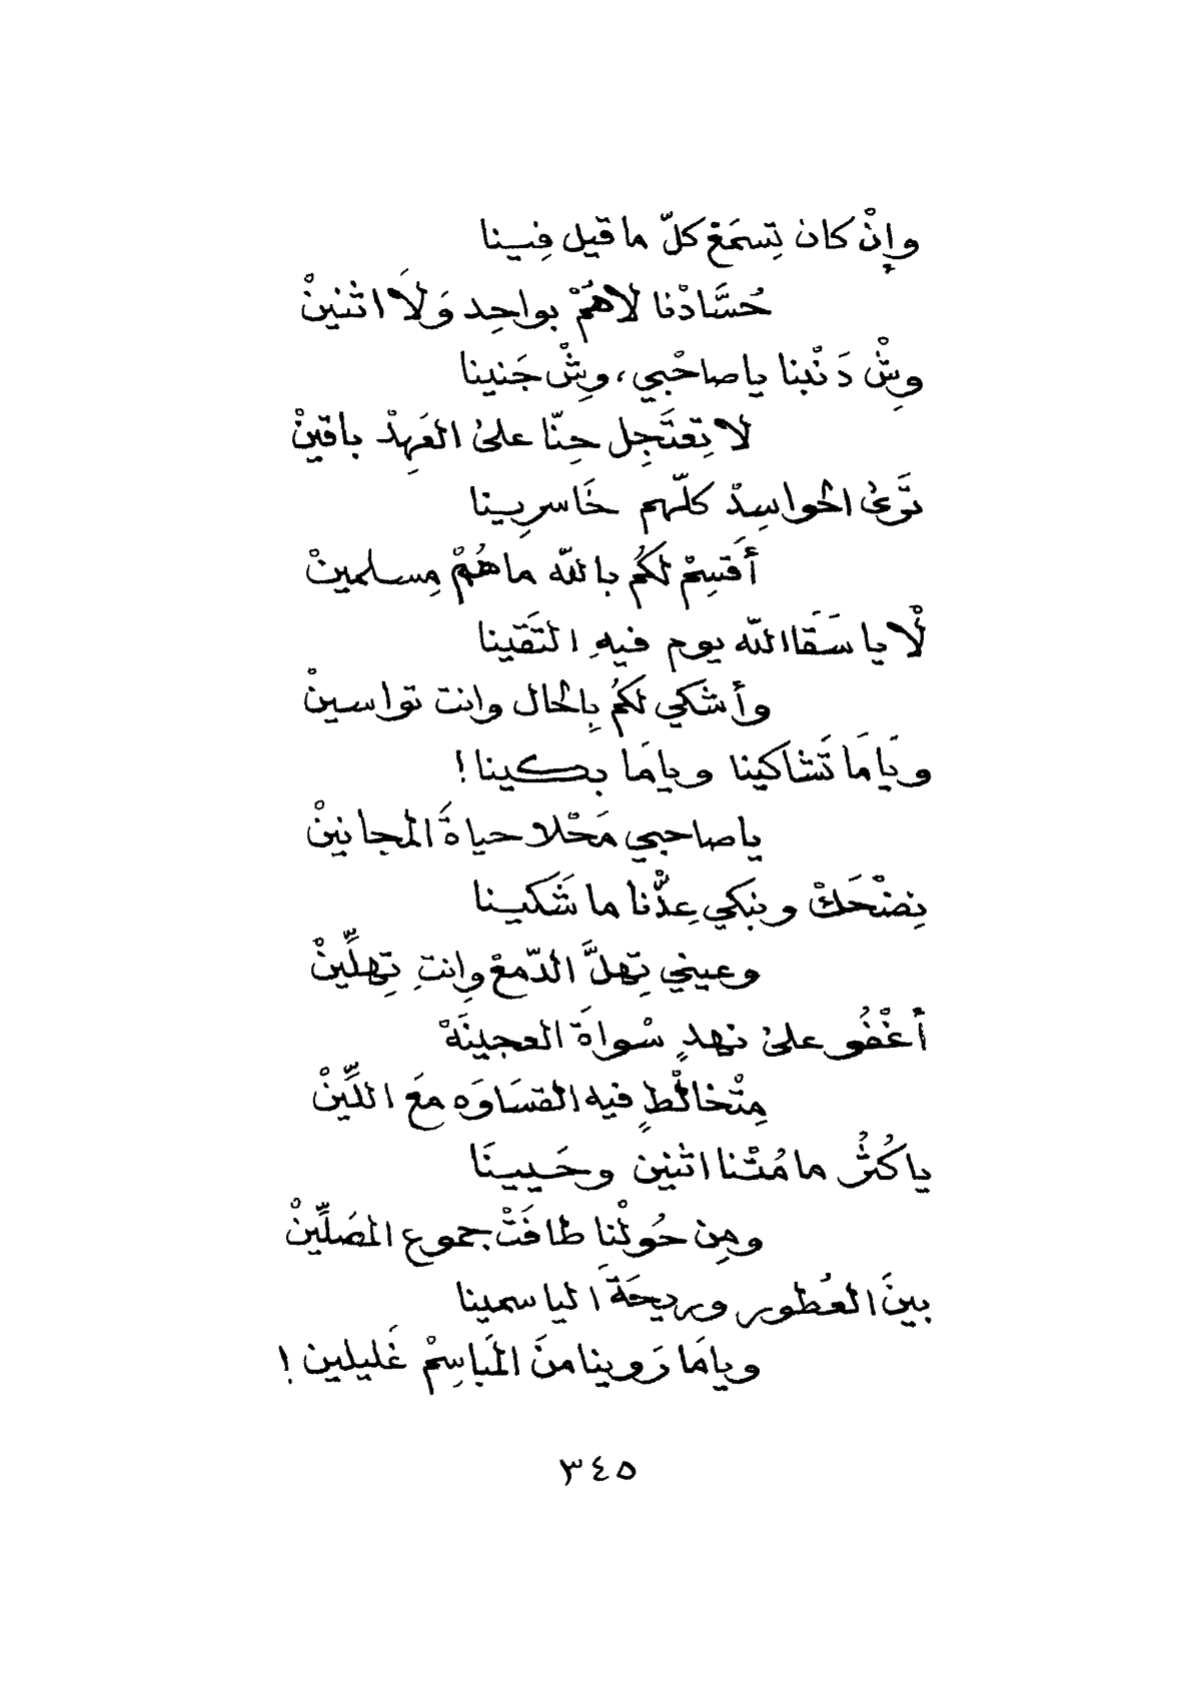 وإنْ كان تِسمَعْ كلّ ما قيل فِينا
حُسَّادْنا لاهُمْ بواحِد وَلَا اثنينْ
وِشْ دَنْبنا ياصاحْبي، وِشْ جَنينا
لا تِعتَجِل حِنّا علىْ العَهِدْ باقينْ
تَرَىْ الحواسِدْ كلّهم خَاسرِيينا
أقسِمْ لكُم بالله ماهُمْ مِسلمينْ
لْا يا سَقَا الله يوم فيهِ التَقَينا
وأشكي لكُم بِالحال وانت تواسينْ
ويَامَا تَشاكينا ويامَا بكينا!
ياصاحبي مَحْلا حياةَ المجانينْ
نِضْحَكْ ونبكي عِدْنا ما شَكَينا
وعيني تِهلَّ الدّمعْ وِانتِ تِهلِّينْ
أغْفُو علىْ نهدٍ سْواةَ العجينَهْ
مِتْخالْطٍ فيه القسَاوَه معَ اللِّينْ
ياكُثُر مامُتْنا اثنين وحَيينَا
ومِن حُولْنا طافَتْ جموع المصَلِّينْ
بينَ العُطور وريحَةَ الياسمينا
ويامَا رَوينا منَ المَباسِمْ غَليلين!
٣٤٥